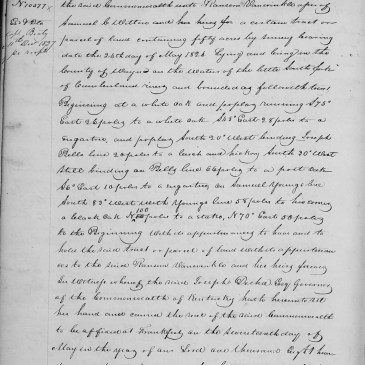 N 10677
the said Commonwealth unto Ransom Vanwinkle assee of
Samuel C Witten and his heirs for a certain tract or
parcel of land containing fifty acres by survey bearing
date the 24th day of May 1824 Lying and being in the
County of Wayne on the Waters of the little South fork
of Cumberland river and bounded as follows towit
Beginning at a white oak and poplar running S75°
East 26 poles to a white oak S35° East 28 poles to a
sugartree and poplar South 20° West binding Joseph
Bells line 20 poles to a beech and hickory South 30° West
still binding on Bells line 66 poles to a post oak
S6° East 10 poles to a sugartree on Samuel Youngs line
South 83° West with Youngs line 58 poles to his corner
a black oak N 100 poles to a stake, N70° East 50 poles
to the Beginning With its appurtenances to have and to
hold the said tract or parcel of land with its appurtenan
ces to the said Ransom Vanwinkle and his heirs forever
In Witness whereof the said Joseph Desha Esqr Governor
of the Commonwealth of Kentucky hath hereunto set
his hand and caused the seal of the said Commonwealth
to be affixed at Frankfort on the seventeenth day of
May in the year of our Lord one thousand Eight hun